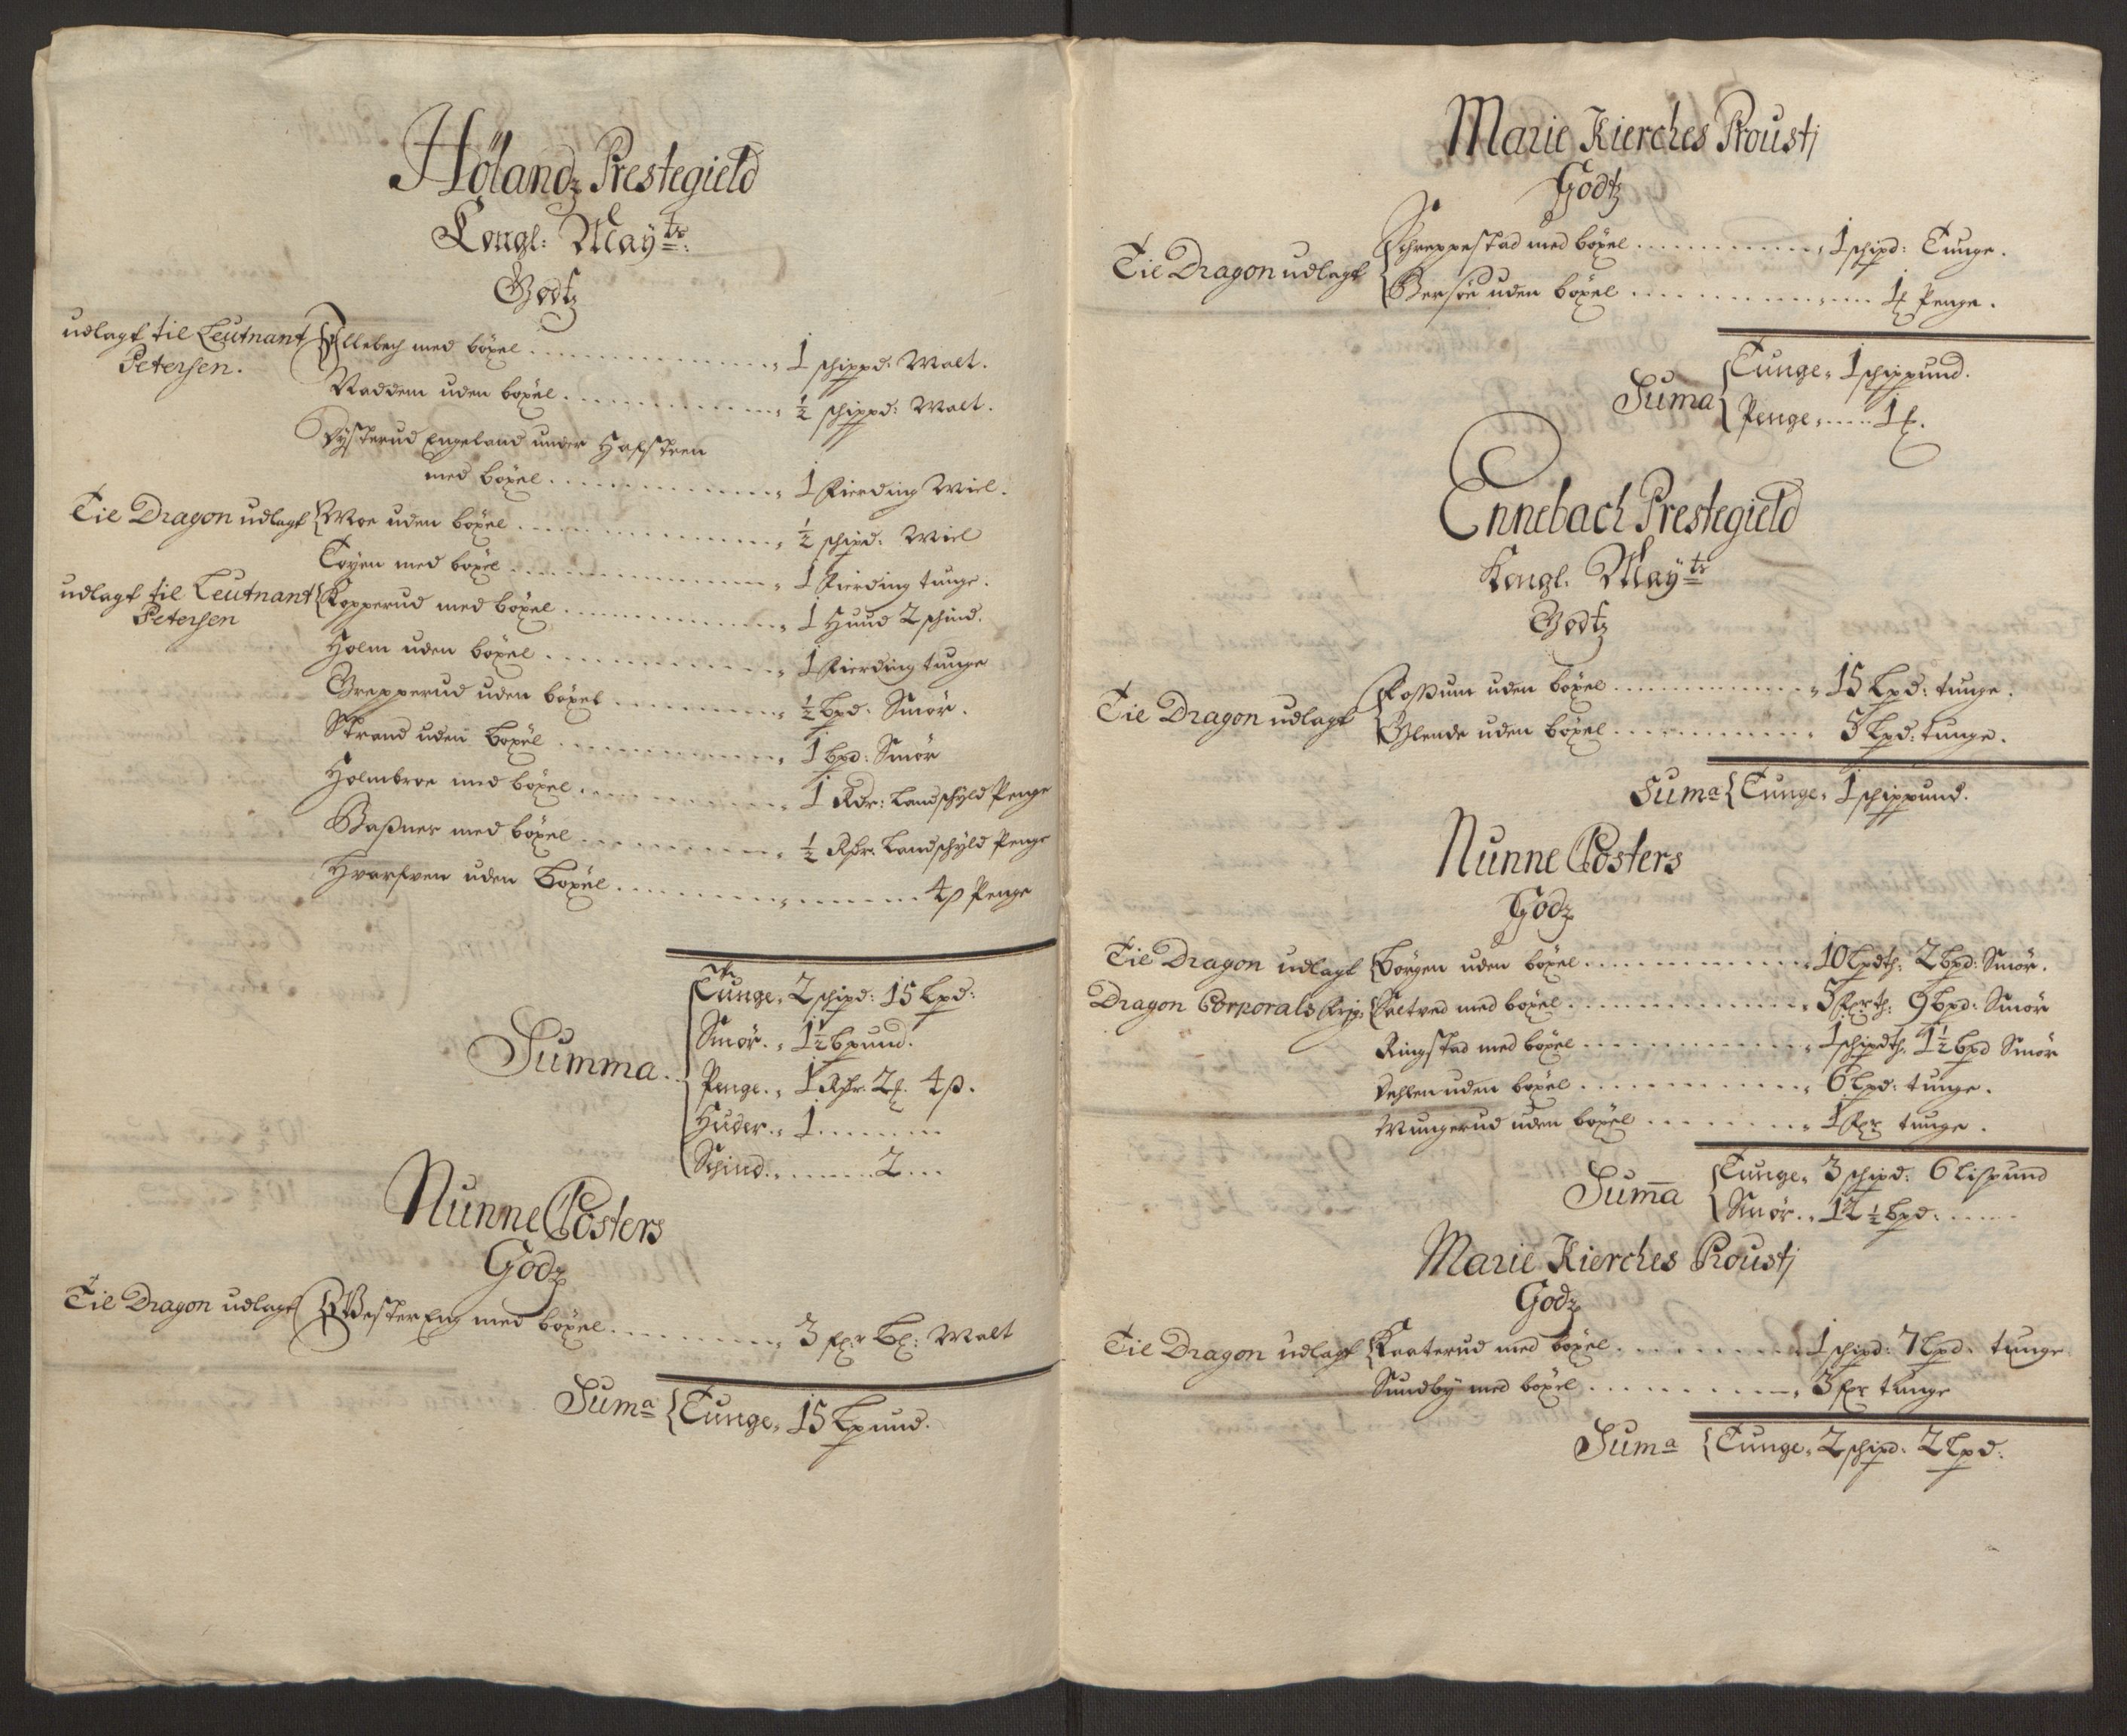 Hölandz Prestegield
Kongl: Mayts:
Godtz
udlagt til Leutnant Petersen. { Ellebech med böxel . . . 1 schippd: Malt.
Naddem uden böxel . . . ½ schippd: Malt.
Dysterud Engeland under Hafsteen
med böxel . . . 1 Fierding Miel.
Til Dragon udlagt { Moe uden böxel . . . ½ schipd: Miel
Toyen med böxel . . . 1 Fierding tunge.
udlagt til Leutnant Petersen { Kopperud med böxel . . . 1 Huud 2 schind.
Holm uden böxel . . . 1 Fierding tunge
Grepperud uden böxel . . . ½ bpd: Smör.
Strand uden böxel . . . 1 bpd: Smör
Holmbroe med böxel . . . 1 Rdr: Landschyld Penge
Baßnes med böxel . . . ½ Rdr: Landschyld Penge
Hvarfven uden böxel . . . 4 ß Penge
Summa.
Tunge, 2 schipd: 15 Lpd:
Smör., 1½ bpund.
Penge., 1 Rdr. 2 ƺ. 4 ß.
Huder., 1 . . .
Schind. . . . 2 . . .
Nunne Closters
Godz
Til Dragon udlagt { Vester Eng med böxel . . . 3 fxr Bl: Malt
Suma { Tunge, 15 Lpund.
Marie Kierches Prousti
Godtz
Til Dragon udlagt { Schreppestad med böxel . . . 1 schipd: Tunge.
Bersöe uden böxel . . . 1 ƺ Penge.
Suma
Tunge, 1 schippund.
Penge, . . . 1 ƺ.
Ennebach Prestegield
Kongl. Mayts
Godtz
Til Dragon udlagt { Foßum uden böxel . . . 15 Lpd: tunge.
Glende uden böxel . . . 5 Lpd: tunge.
Suma { Tunge, 1 schippund.
Nunne Closters
Godz
Til Dragon udlagt { Börgen uden böxel . . . 10 Lpdth: 2 bpd: Smör.
Dragon Corporals { Tveter med böxel . . . 5 fxrth: 9 bpd: Smör
Ringstad med böxel . . . 1 schipdth, 1½ bpd Smör
Vehlen uden böxel . . . 6 Lpd: tunge.
Mungerud uden böxel . . . 1 fxr tunge.
Suma
Tunge, 3 schipd: 6 Lispund
Smör., 12½ bpd: . . .
Marie Kierches Prousti
Godz
Til Dragon udlagt { Kaaterud med böxel . . . 1 schipd: 7 Lpd: tunge
Sundby med böxel . . . 3 fxr tunge
Suma { Tunge, 2 schipd: 2 Lpd: